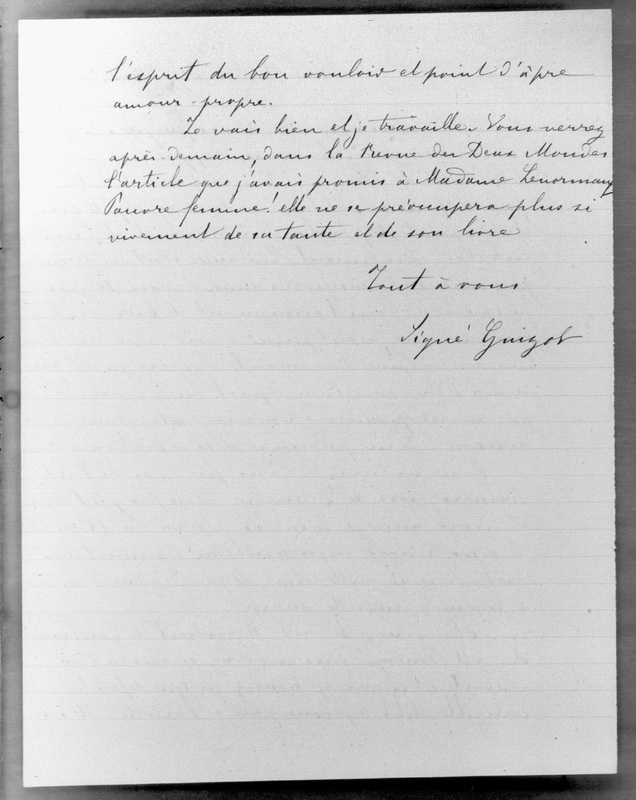 l'esprit du bon vouloir et point d'âpre
amour-propre.
Je vais bien et je travaille. Vous verrez
après-demain, dans la Revue des Deux Mondes
l'article que j'avais promis à Madame Lenormant
Pauvre femme! elle ne se préoccupera plus si
vivement de sa tante et de son livre
Tout à vous
Signé Guizot